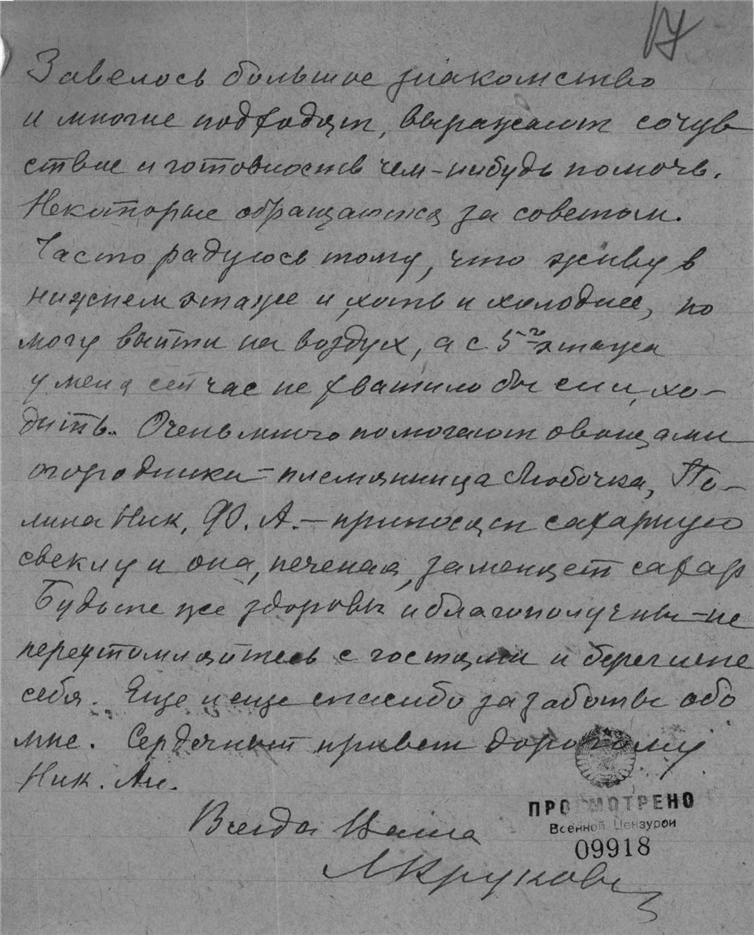 17
Завелось большое знакомство
и многие подходят, выражают сочув
ствие и готовность чем-нибудь помочь.
Некоторые обращаются за советом.
Часто радуюсь тому, что живу в
нижнем этаже и, хоть и холоднее, но
могу выйти на воздух, а с 5го этажа
у меня сейчас не хватило бы сил хо-
дить. Очень много помогают овощами
огородники - племянница Любочка, По-
лина Ник, Ф. А. - приносят сахарную
свеклу и она, печеная, заменяет сахар
Будьте же здоровы и благополучны - не
переутомляйтесь с гостями и берегите
себя. Еще и еще спасибо за заботы обо
мне. Сердечный привет дорогому
Ник. Ан.
Всегда Ваша
ПРОСМОТРЕНО
Военной Цензурой
09918